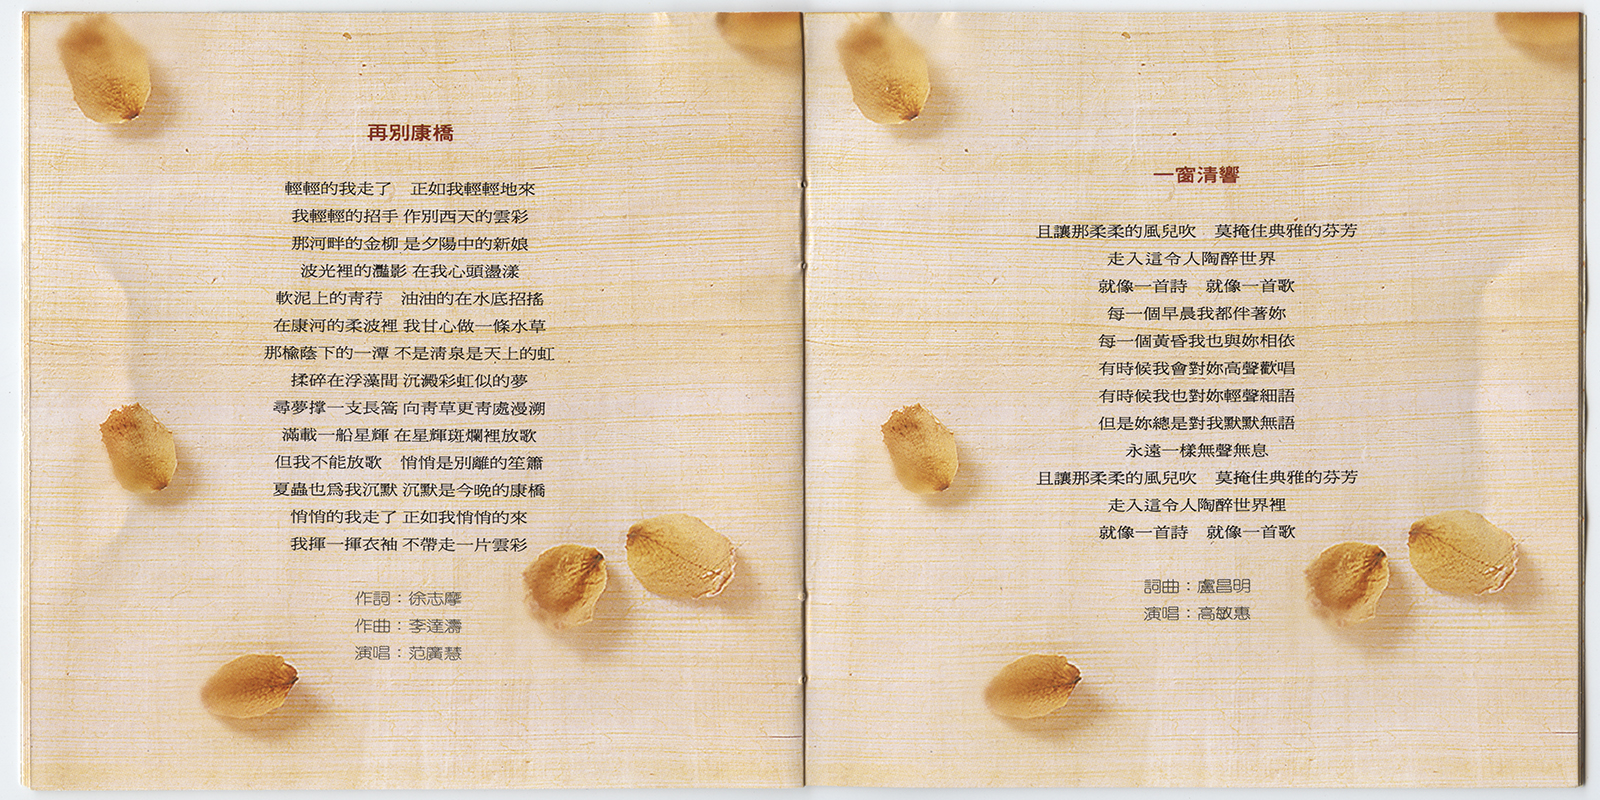 再別康橋
輕輕的我走了　正如我輕輕地來
我輕輕的招手 作別西天的雲彩
那河畔的金柳 是夕陽中的新娘
波光裡的灩影 在我心頭盪漾
軟泥上的青荇　油油的在水底招搖
在康河的柔波裡 我甘心做一條水草
那榆蔭下的一潭 不是清泉是天上的虹
揉碎在浮藻間 沉澱彩虹似的夢
尋夢撐一支長篙 向青草更青處漫溯
滿載一船星輝 在星輝斑爛裡放歌
但我不能放歌　悄悄是別離的笙簫
夏蟲也為我沉默 沉默是今晚的康橋
悄悄的我走了 正如我悄悄的來
我揮一揮衣袖 不帶走一片雲彩
作詞：徐志摩
作曲：李達濤
演唱：范廣慧
一窗清響
且讓那柔柔的風兒吹　莫掩住典雅的芬芳
走入這令人陶醉世界
就像一首詩　就像一首歌
每一個早晨我都伴著妳
每一個黃昏我也與妳相依
有時候我會對妳高聲歡唱
有時候我也對妳輕聲細語
但是妳總是對我默默無語
永遠一樣無聲無息
且讓那柔柔的風兒吹　莫掩住典雅的芬芳
走入這令人陶醉世界裡
就像一首詩　就像一首歌
詞曲：盧昌明
演唱：高敏惠